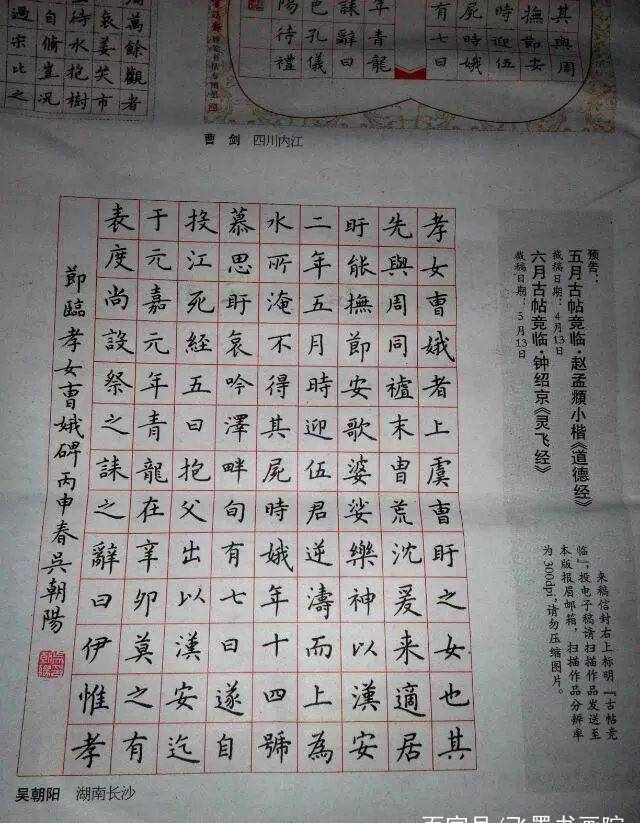 其與周
撫節安
時迎伍
屍時娥
有七日
年青龍
誄辭曰
色孔儀
待禮
萬餘觀者
姜哭市
待水抱樹
自脩豈況
過宗比之
曹 剑 四川内江
预告：
五月古帖竞临·赵孟頫小楷《道德经》
截稿日期：4月13日
六月古帖竞临·钟绍京《灵飞经》
截稿日期：5月13日
来稿信封右上标明“古帖竞
临”，投电子稿请扫描作品发送至
本版报眉邮箱，扫描作品分辨率
为300dpi，请勿压缩图片。
孝女曹娥者上虞曹盱之女也其
先與周同禠末曹荒沈爰来適居
盱能撫節安歌婆娑樂神以漢安
二年五月時迎伍君逆濤而上為
水所淹不得其屍時娥年十四號
慕思盱哀吟澤畔旬有七日遂自
投江死經五日抱父出以漢安迄
于元嘉元年青龍在辛卯莫之有
表度尚設祭之誄之辭曰伊惟孝
節臨孝女曹娥碑丙申春吳朝陽
吴朝阳 湖南长沙